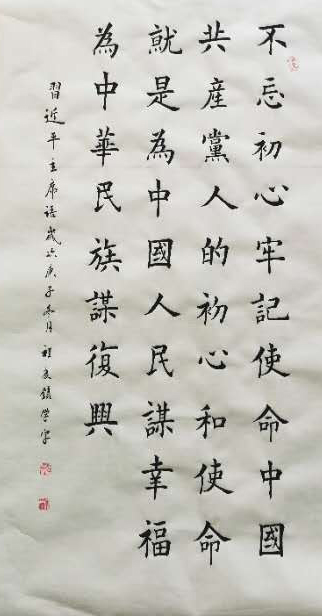 不忘初心牢記使命中國
共產黨人的初心和使命
就是為中國人民謀幸福
為中華民族謀復興
習近平主席語歲次庚子冬月程良鎮學字